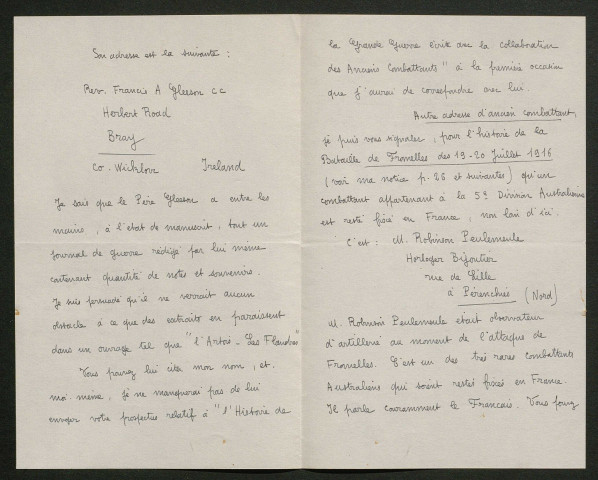 Son adresse est la suivante :
Rev. Francis A Gleeson cc
Herbert Road
Bray
Co. Wicklow Ireland
Je sais que le Père Gleeson a entre les
mains, à l'état de manuscrit, tout un
journal de guerre rédigé par lui même
contenant quantité de notes et souvenirs.
Je suis persuadé qu'il ne verrait aucun
obstacle à ce que des extraits en paraissent
dans un ouvrage tel que "l'Artois - Les Flandres"
Vous pouvez lui citer mon nom, et,
moi-même, je ne manquerai pas de lui
envoyer votre prospectus relatif à "l'Histoire de
la Grande Guerre écrite avec la collaboration
des Anciens Combattants" à la première occasion
que j'aurai de correspondre avec lui.
Autre adresse d'ancien combattant,
je puis vous signaler, pour l'histoire de la
Bataille de Fromelles des 19-20 Juillet 1916
(voir ma notice p. 28 et suivantes) qu'un
combattant appartenant à la 5e Division Australienne
est resté fixé en France, non loin d'ici.
C'est : M. Robinson Peulemeule
Horloger Bijoutier
rue de Lille
à Pérenchies (Nord)
M. Robinson Peulemeule était observateur
d'artillerie au moment de l'attaque de
Fromelles. C'est un des très rares combattants
Australiens qui soient restés fixés en France.
Il parle couramment le Français. Vous pouvez